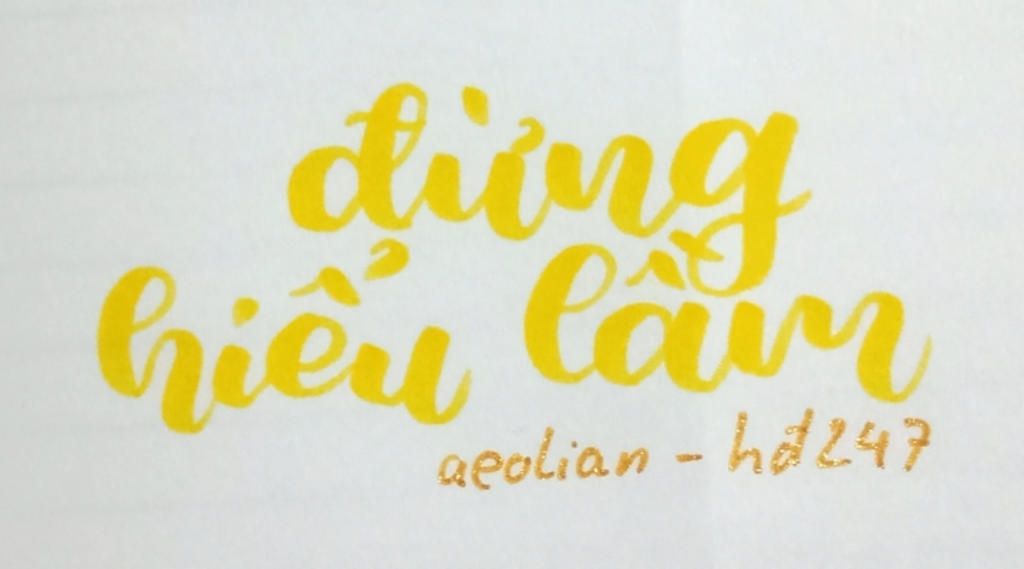 đừng
hiểu lầm
aeolian - hđ247